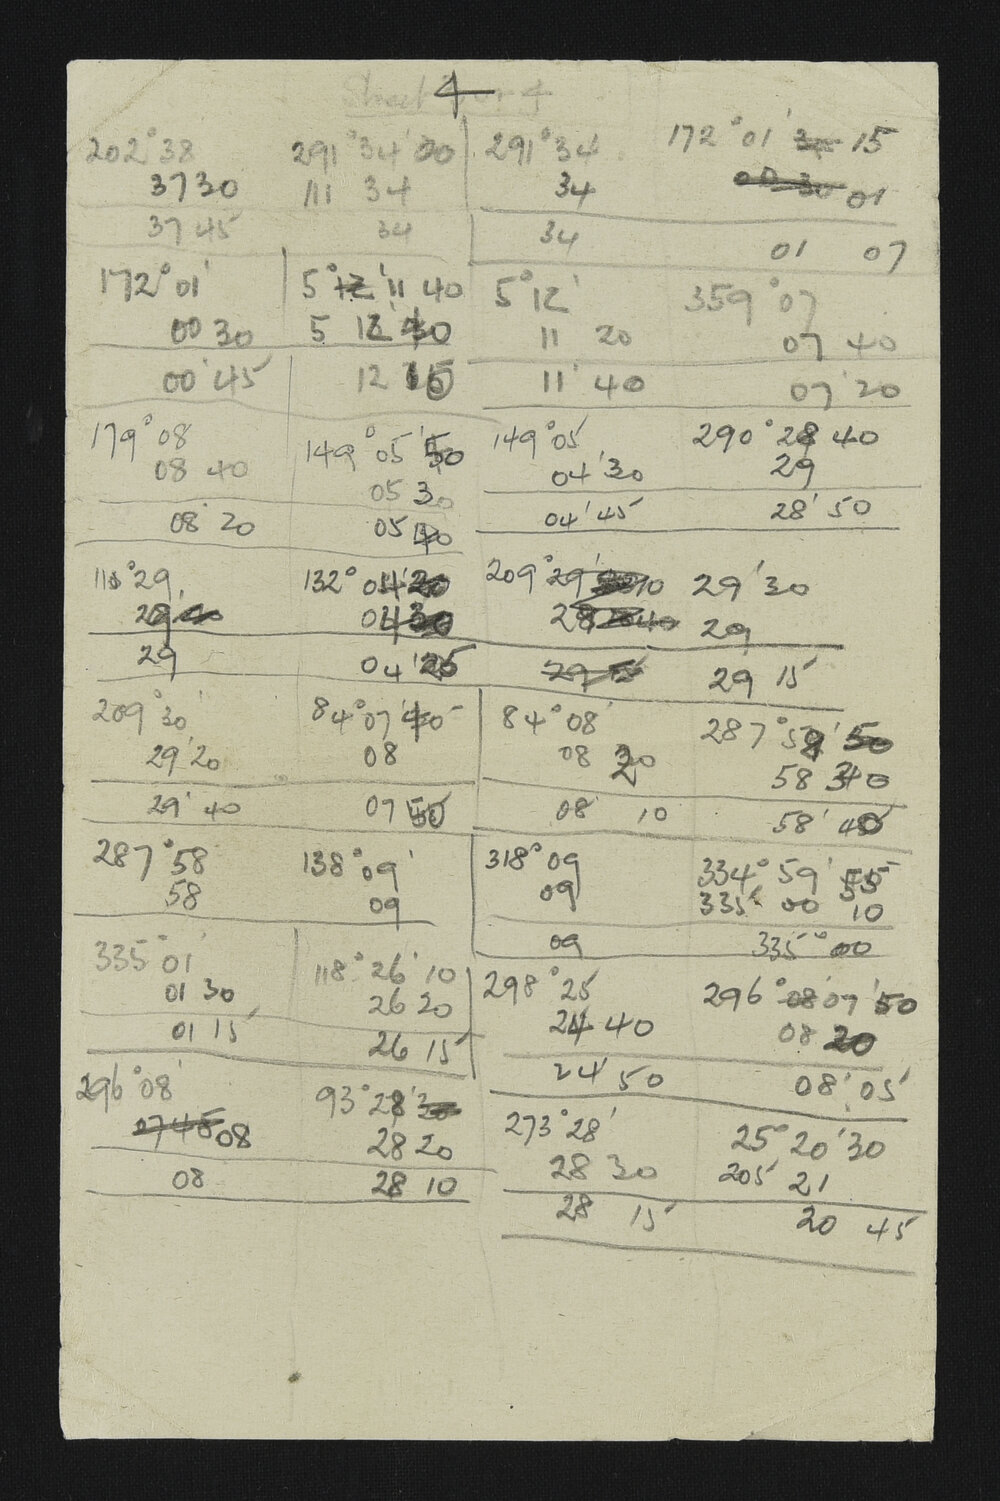 4
202°38 291°34'00 291°34' 172°01' 15
3730 111 34 34 01
37 45 34 34 01 07
172°01' 5°12' 11 40 5°12' 359°07
00 30 5 12' 11 20 07 40
00'45 12 15 11' 40 07'20
179°08 149°05' 50 149°05' 290°28 40
08 40 05 30 04'30 29
08' 20 05 40 04'45 28'50
110°29 132°04' 209°29' 10 29'30
04 29
29 04'25 29 15
209°30' 84°07' 84°08' 287°58'
29'20 08 08 20 58
29' 40 07 50 08' 10 58'
287°58 138°09' 318°09 334°59' 55
58 09 09 335° 00 10
09 335°00
335°01' 118°26' 10 298°25 296°08 07' 50
01 30 26 20 24 40 08 20
01 15 26 15 24' 50 08' 05
296°08' 93°28' 273°28' 25°20'30
08 28 20 28 30 205 21
08 28 10 28 15 20 45